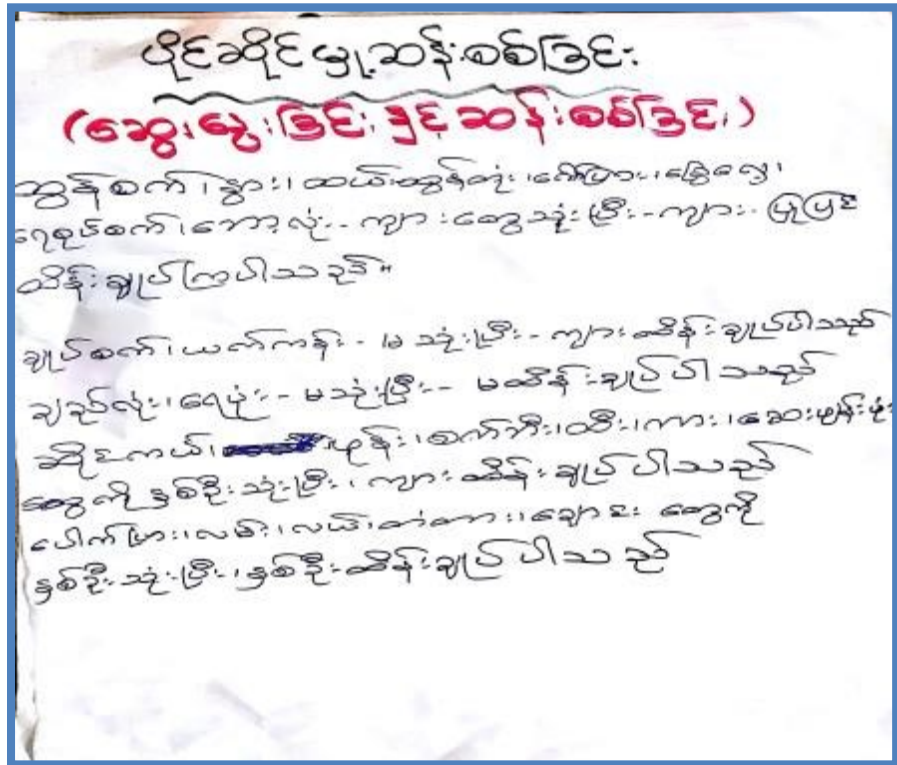 ပိုင်ဆိုင်မှု့ဆန်းစစ်ခြင်း
(ဆွေးနွေးခြင်း၊ နှင့်ဆန်းစစ်ခြင်း)
ထွန်စက်၊ နွား၊ ထယ်ထွန်တုံး၊ ပေါက်ပြား၊ ခြွေလှေ့၊
ရေစုပ်စက်၊ ဘော့လုံး - ကျားတွေသုံးပြီး - ကျား - ပြုပြင်
ထိန်းချုပ်ကြပါသည်။
ချုပ်စက်၊ ယက်ကန်း - မသုံးပြီး - ကျားထိန်းချုပ်ပါသည်
ချည်လုံး၊ ရေပုံး - မသုံးပြီး - မထိန်းချုပ်ပါသည်
ဆိုင်ကယ်၊ ဖုန်း၊ စက်ဘီး၊ ထီး၊ ကား၊ ဆေးဖျန်းပုံး
တွေကို နှစ်ဦးသုံးပြီး၊ ကျားထိန်းချုပ်ပါသည်
ပေါက်ပြား၊ လမ်း၊ လယ်၊ တံတား၊ ချောင်း တွေကို
နှစ်ဦးသုံးပြီး၊ နှစ်ဦးထိန်းချုပ်ပါသည်